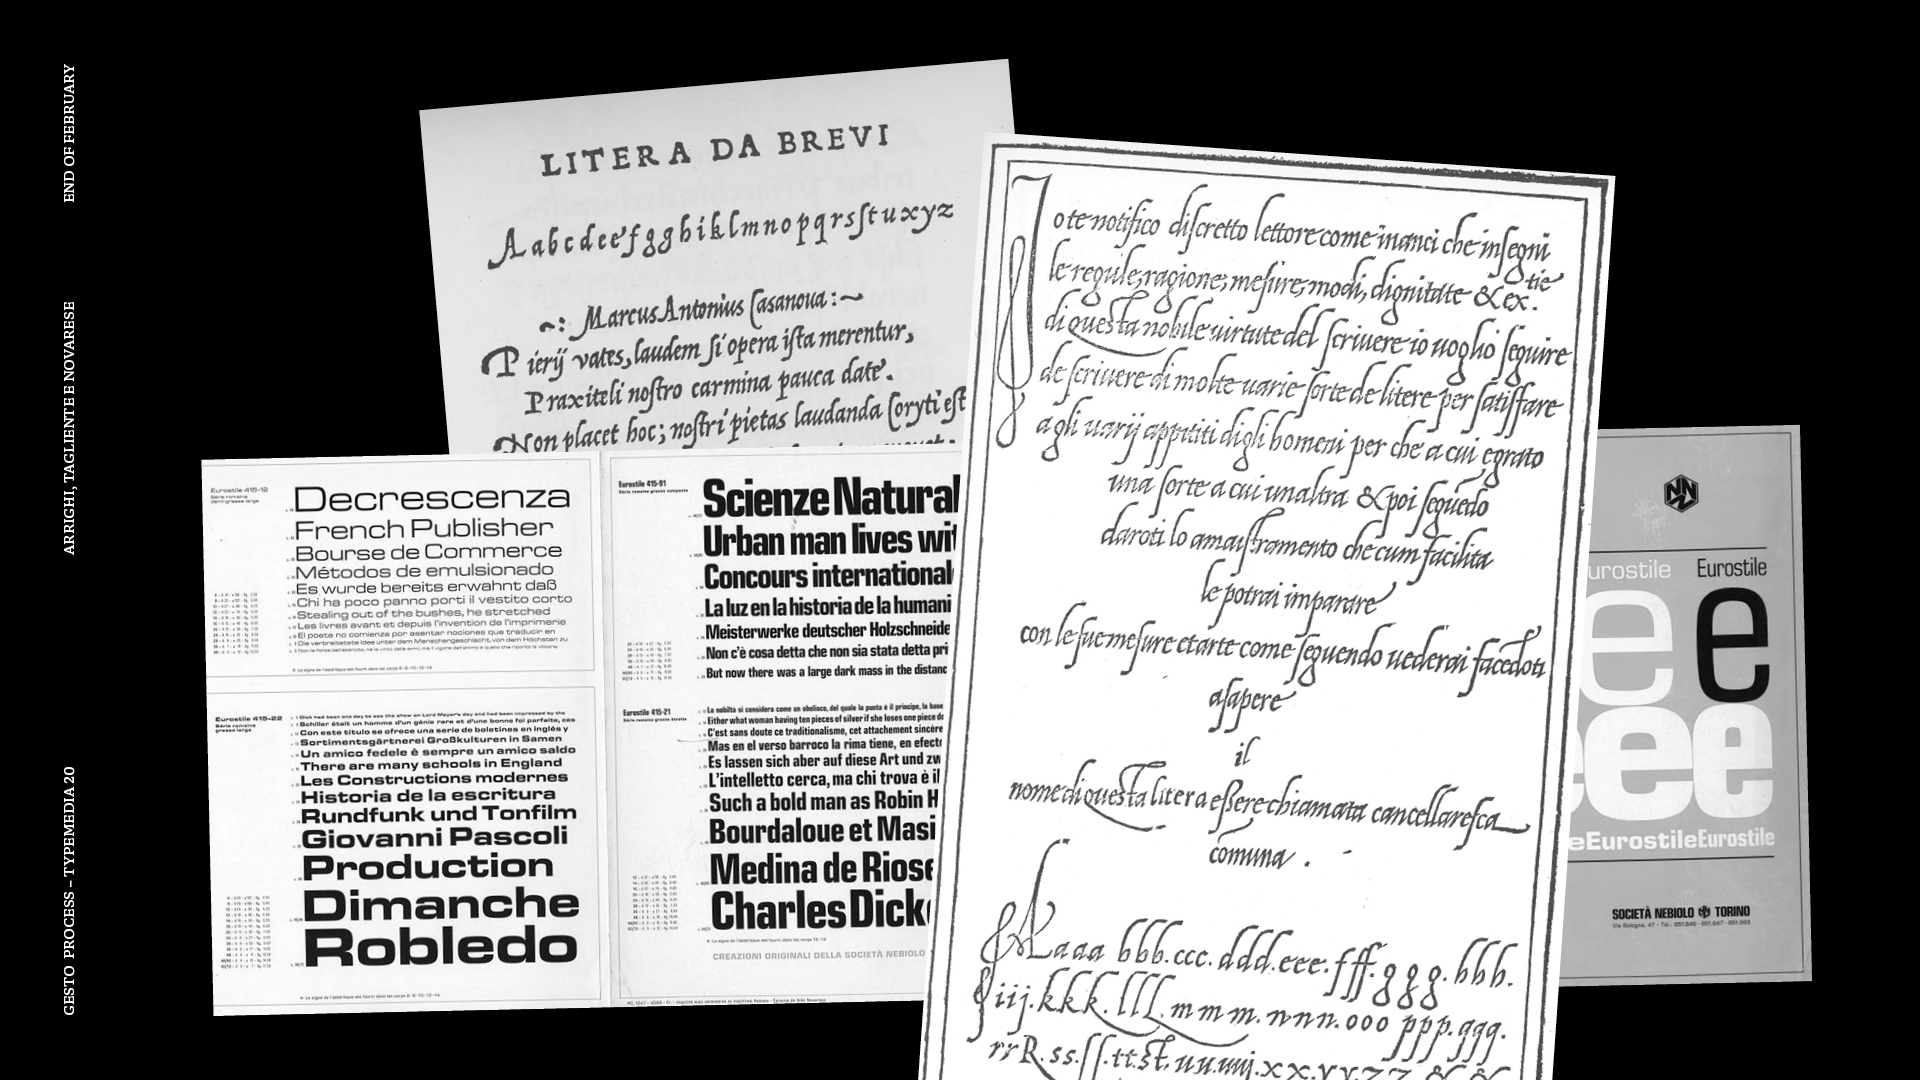 END OF FEBRUARY
ARRIGHI, TAGLIENTE E NOVARESE
GESTO PROCESS – TYPEMEDIA 20
LITERA DA BREVI
A a b c d e e f g g h i k l m n o p q r s ſ t u x y z
~: Marcus Antonius Casanoua :~
Pierij vates, laudem si opera ista merentur,
Praxiteli nostro carmina pauca date.
Non placet hoc; nostri pietas laudanda Coryti est
Eurostile 415-12
Série romaine
demi-grasse large
Decrescenza
French Publisher
Bourse de Commerce
Métodos de emulsionado
Es wurde bereits erwahnt daß
Chi ha poco panno porti il vestito corto
Stealing out of the bushes, he stretched
Les livres avant et depuis l'invention de l'imprimerie
El poeta no comienza por asentar nociones que traducir en
Die verbreitetste Idee unter dem Menschengeschlecht, von dem Höchsten zu
Eurostile 415-22
Série romaine
grasse large
Dick had been one day to see the show on Lord Mayor's day and had been impressed by the
Schiller était un homme d'un génie rare et d'une bonne foi parfaite, ces
Con este título se ofrece una serie de boletines en inglés y
Sortimentsgärtnerei Großkulturen in Samen
Un amico fedele è sempre un amico saldo
There are many schools in England
Les Constructions modernes
Historia de la escritura
Rundfunk und Tonfilm
Giovanni Pascoli
Production
Dimanche
Robledo
Eurostile 415-91
Série romaine grasse compacte
Scienze Natural
Urban man lives wit
Concours international
La luz en la historia de la humani
Meisterwerke deutscher Holzschneide
Non c'è cosa detta che non sia stata detta pri
But now there was a large dark mass in the distanc
Eurostile 415-21
Série romaine grasse étroite
La nobiltà si considera come un obelisco, del quale la punta è il principe, la base
Either what woman having ten pieces of silver if she loses one piece do
C'est sans doute ce traditionalisme, cet attachement sincère
Mas en el verso barroco la rima tiene, en efecto
Es lassen sich aber auf diese Art und zw
L'intelletto cerca, ma chi trova è il
Such a bold man as Robin H
Bourdaloue et Masi
Medina de Riose
Charles Dick
CREAZIONI ORIGINALI DELLA SOCIETÀ NEBIOLO
Io te notifico discretto lettore come inanci che insegni
le regule, ragione, mesure, modi, dignitate & ex.
tie
di questa nobile uirtute del scriuere io uoglio seguire
de scriuere di molte uarie sorte de litere per satisfare
a gli uarij appititi digli homeni per che a cui egrato
una sorte a cui unaltra & poi seguēdo
daroti lo amaistramento che cum facilita
le potrai imparare
con le sue mesure et arte come seguendo uederai facēdoti
asapere
il
nome di questa litera eßere chiamata cancellaresca
comuna .
A a a a bbb. ccc. ddd. eee. fff. ggg. hhh.
iij. kkk. lll. mmm. nnn. ooo ppp. qqq.
rrR. ss. ſſ. tt. st. uuuuj. xx. yy. zz. & &
NN
urostile Eurostile
e e
eee
eEurostileEurostile
SOCIETÀ NEBIOLO TORINO